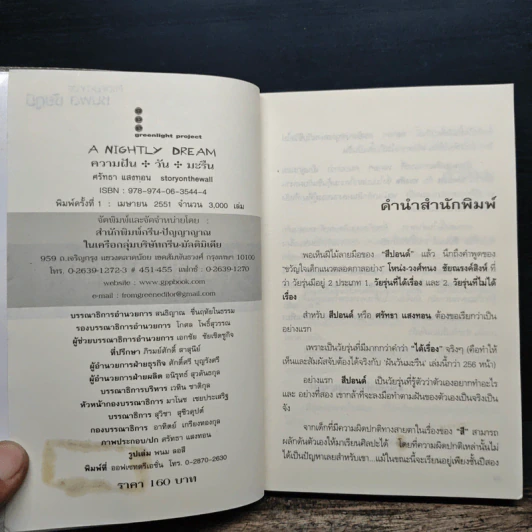 greenlight project
A NIGHTLY DREAM
ความฝัน ✢ วัน ✢ มะรืน
ศรัทธา แสงทอน storyonthewall
ISBN : 978-974-06-3544-4
พิมพ์ครั้งที่ 1 : เมษายน 2551 จำนวน 3,000 เล่ม
จัดพิมพ์และจัดจำหน่ายโดย :
สำนักพิมพ์กรีน-ปัญญาญาณ
ในเครือกลุ่มบริษัทกรีน-มัลติมีเดีย
959 ถ.เจริญกรุง แขวงตลาดน้อย เขตสัมพันธวงศ์ กรุงเทพฯ 10100
โทร. 0-2639-1272-3 # 451-455 แฟกซ์ : 0-2639-1270
website : www.gppbook.com
e-mail : fromgreeneditor@gmail.com
บรรณาธิการอำนวยการ สนธิญาณ ชื่นฤทัยในธรรม
รองบรรณาธิการอำนวยการ โกศล โพธิ์สุวรรณ
ผู้ช่วยบรรณาธิการอำนวยการ เอกชัย ชัยเชิดชูกิจ
ที่ปรึกษา ภิรมย์ศักดิ์ สาสุนีย์
ผู้อำนวยการฝ่ายธุรกิจ ศักดิ์ศรี บุญรังศรี
ผู้อำนวยการฝ่ายผลิต อนิรุทธ์ สุวคันธกุล
บรรณาธิการบริหาร เวทิน ชาติกุล
หัวหน้ากองบรรณาธิการ มาโนช เขมประเสริฐ
บรรณาธิการ สุวิชา
กองบรรณาธิการ อาทิตย์ เกรียงทองกุล
ภาพประกอบ/ปก ศรัทธา แสงทอน
รูปเล่ม พนม ลอสี
พิมพ์ที่ ออฟเซทครีเอชั่น โทร. 0-2870-2630
ราคา 160 บาท
คำนำสำนักพิมพ์
พอเห็นฝีไม้ลายมือของ "สีปอนด์" แล้ว นึกถึงคำพูดของ
'ขวัญใจเด็กแนวตลอดกาลอย่าง' โหน่ง-วงศ์ทนง ชัยณรงค์สิงห์ ที่
ว่า วัยรุ่นมีอยู่ 2 ประเภท 1. วัยรุ่นที่ได้เรื่อง และ 2. วัยรุ่นที่ไม่ได้
เรื่อง
สำหรับ สีปอนด์ หรือ ศรัทธา แสงทอน ต้องขอเรียกว่าเป็น
อย่างแรก
เพราะเป็นวัยรุ่นที่มีมากกว่าคำว่า "ได้เรื่อง" จริงๆ (คือทำให้
เห็นและสัมผัสจับต้องได้จริงกับ 'ฝันวันมะรืน' เล่มนี้กว่า 256 หน้า)
อย่างแรก สีปอนด์ เป็นวัยรุ่นที่รู้ตัวว่าตัวเองอยากทำอะไร
และ อย่างที่สอง เขากล้าที่จะลงมือทำตามฝันของตัวเองเป็นจริงเป็น
จัง
จากเด็กที่มีความผิดปกติทางสายตาในเรื่องของ "สี" สามารถ
ผลักดันตัวเองให้มาเรียนศิลปะได้ โดยที่ความผิดปกติเหล่านั้นไม่
ได้เป็นปัญหาเลยสำหรับเขา...แม้ในขณะนี้จะเรียนอยู่เพียงชั้นปีสอง